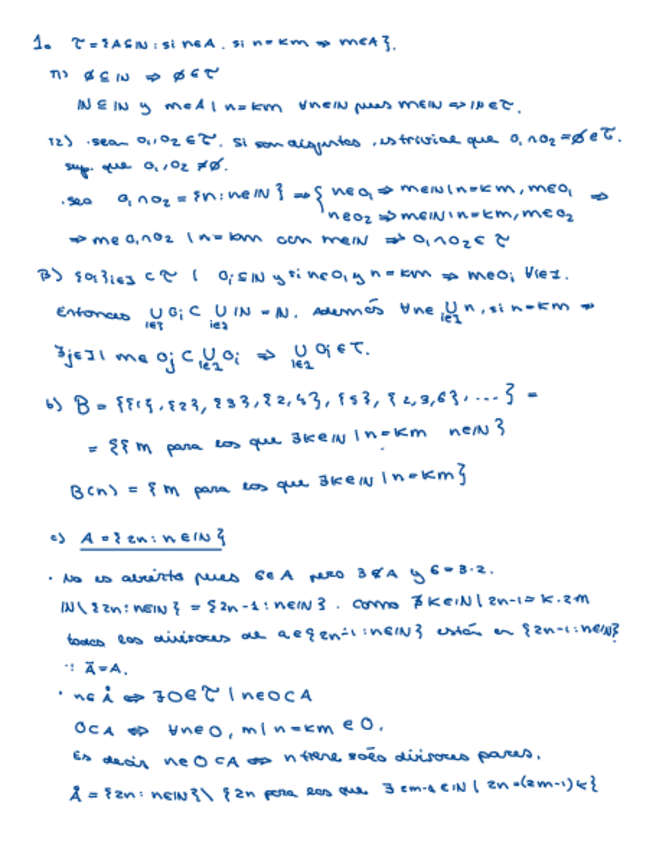 1. τ = {A⊆ℕ : si n∈A. si n=km ⇒ m∈A}.
T1) ∅⊆ℕ ⇒ ∅∈τ
ℕ⊆ℕ y m∈A | n=km ∀n∈ℕ pues m∈ℕ ⇒ ℕ∈τ.
T2) ·sean O₁,O₂∈τ. Si son disjuntos, es trivial que O₁∩O₂=∅∈τ.
sup. que O₁,O₂≠∅.
·sea O₁∩O₂={n:n∈ℕ} ⇒ { n∈O₁ ⇒ m∈ℕ|n=km, m∈O₁ ⇒
n∈O₂ ⇒ m∈ℕ|n=km, m∈O₂
⇒ m∈O₁∩O₂ | n=km con m∈ℕ ⇒ O₁∩O₂∈τ
T3) {Oi}i∈I ⊂ τ | Oi⊆ℕ y si n∈Oi y n=km ⇒ m∈Oi ∀i∈I.
Entonces ⋃i∈I Oi ⊂ ⋃i∈I ℕ = ℕ. Además ∀n∈⋃i∈I n, si n=km ⇒
∃j∈I | m∈Oj ⊂ ⋃i∈I Oi ⇒ ⋃i∈I Oi∈τ.
b) B = {{1}, {2}, {3}, {2,4}, {5}, {2,3,6}, ...} =
= {{m para los que ∃k∈ℕ | n=km n∈ℕ}
B(n) = {m para los que ∃k∈ℕ | n=km}
c) A={2n:n∈ℕ}
· No es abierto pues 6∈A pero 3∉A y 6=3·2.
ℕ\{2n:n∈ℕ} = {2n-1:n∈ℕ}. Como ∄k∈ℕ | 2n-1=k·2m
todos los divisores de a∈{2n-1:n∈ℕ} están en {2n-1:n∈ℕ}
∵ Ā=A.
· n∈Å ⇔ ∃O∈τ | n∈O⊂A
O⊂A ⇔ ∀n∈O, m | n=km ∈O.
Es decir n∈O⊂A ⇔ n tiene sólo divisores pares.
Å = {2n:n∈ℕ}\{2n para los que ∃ 2m-1∈ℕ | 2n=(2m-1)k}